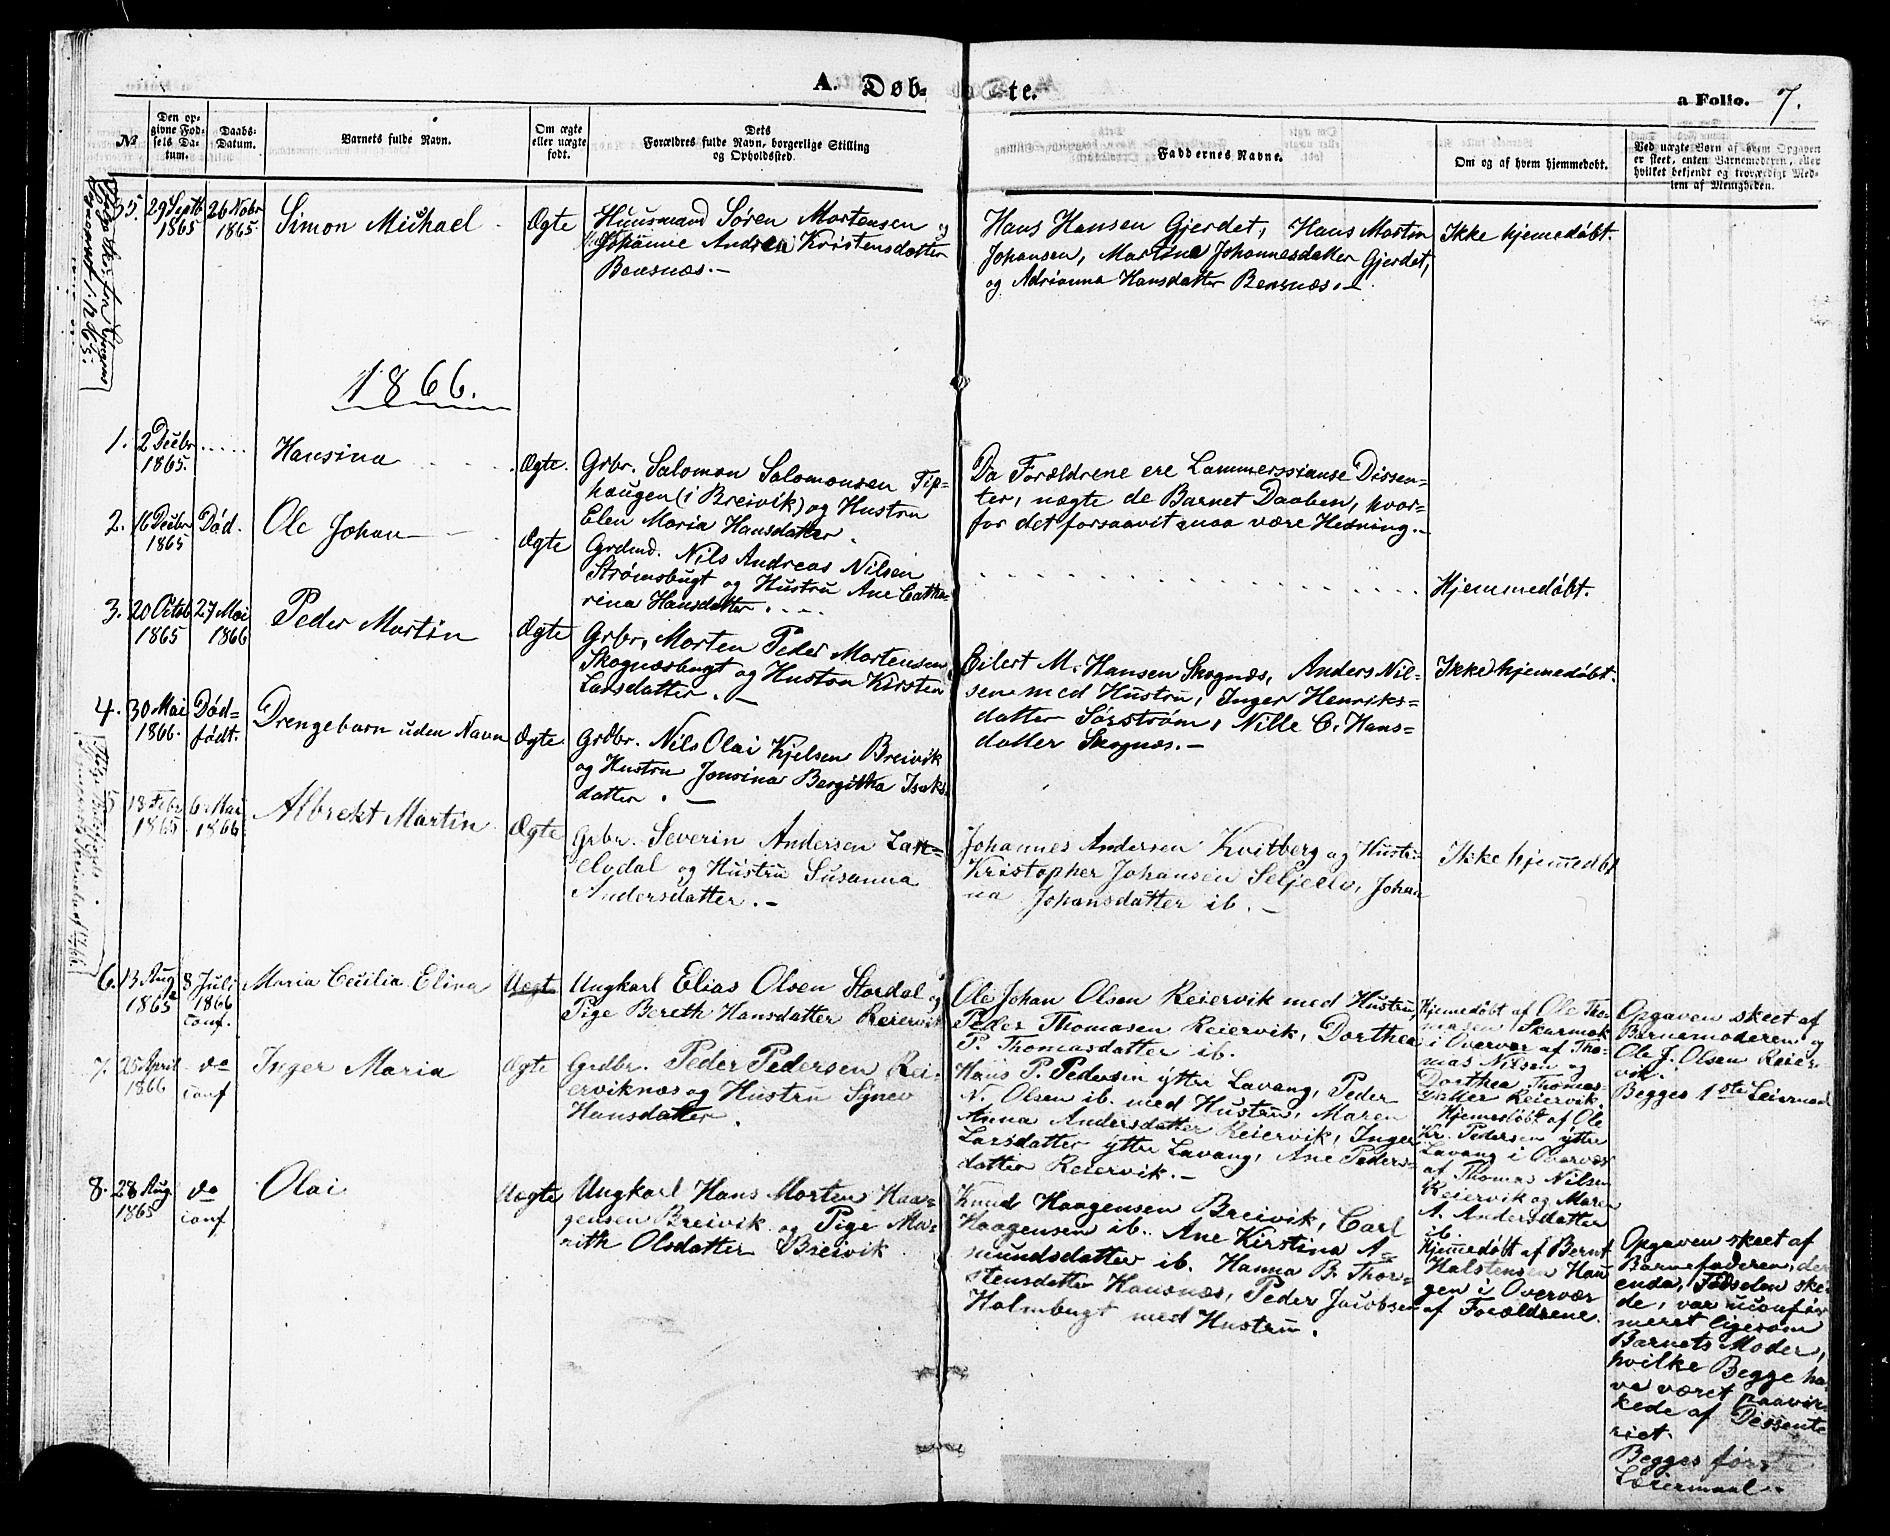 A. Døb-
te.
a Folio. 7.
№
Den op-
givne Fød-
sels Da-
tum.
Daabs-
Datum.
Barnets fulde Navn.
Om ægte
eller uægte
født.
Dets
Forældres fulde Navn, borgerlige Stilling
og Opholdssted.
Faddernes Navne.
Om og af hvem hjemmedøbt.
Ved uægte Børn af hvem Opgaven
er skeet, enten Barnemoderen, eller
hvilket bekjendt og troværdigt Med-
lem af Menigheden.
35. 29 Septb 1865
26 Nobr 1865.
Simon Michael
Ægte
Huusmand Søren Mortensen og
Andrea Kristensdatter
Bensnæs.-
Hans Hansen Gjerdet, Hans Martin
Johansen, Martina Johannesdatter Gjerdet,
og Adrianna Hansdatter Bensnæs.-
Ikke hjemedøbt.
1866.
1. 2 Decbr 1865.
Hansina
Ægte.
Grbr. Salomon Salomonsen Tip-
haugen (i Breivik) og Hustru
Elen Maria Hansdatter.
Da Forældrene ere Lammerssianse Dissen-
ter, nægte de Barnet Daaben, hvor-
for det forsaavit maa være Hedning.-
2. 16 Decbr 1865
Død.
Ole Johan
Ægte
Grdmd. Nils Andreas Nilsen
Strømsbugt og Hustru Ane Catha-
rina Hansdatter.
Hjemmedøbt.
3. 20 Octob 1865
27 Mai 1866
Peder Martin
Ægte
Grbr. Morten Peder Mortensen
Skognæsbugt og Hustru Kirsten
Larsdatter.
Eilert M. Hansen Skognæs, Anders Nil-
sen med Hustru, Inger Henriks-
datter Sørstrøm, Nille C. Hans-
datter Skognæs.-
Ikke hjemedøbt.
4. 30 Mai 1866.
Død-
født.
Drengebarn uden Navn
Ægte
Grdbr. Nils Olai Kjelsen Breivik
og Hustru Jonsina Bergitha Isaks-
datter.
18 Febr 1865
6 Mai 1866
Albrekt Martin
Ægte
Grbr. Severin Andersen Lak-
elvdal og Hustru Susanna
Andersdatter.-
Johannes Andersen Kvitberg og Hustru
Kristopher Johansen Seljeelv, Johan-
na Johansdatter ib.-
Ikke hjemedøbt
6. 13 Aug 1865
8 Juli 1866
conf.
Maria Cecilia Elina
Uægt
Ungkarl Elias Olsen Stordal og
Pige Bereth Hansdatter Reiervik
Ole Johan Olsen Reiervik med Hustru,
Peder Thomasen Reiervik, Dorthea
P. Thomasdatter ib.
Hjemedøbt af Ole Tho-
masen Skarmok
i Overvær af Tho-
mas Nilsen og
Dorthea Thomas-
datter Reiervik.
Opgaven skeet af
Barnemoderen og
Ole J. Olsen Reier-
vik.
Begges 1ste Leiermaal
7. 25 April 1866
do
conf
Inger Maria
Ægte
Grdbr. Peder Pedersen Rei-
erviknæs og Hustru Synev
Hansdatter.
Hans P. Pedersen yttre Lavang, Peder
N. Olsen ib. med Hustru, Maren
Anna Andersdatter Reiervik, Inger
Larsdatter yttre Lavang, Ane Peders-
datter Reiervik.-
Hjemedøbt af Ole
Kr. Pedersen yttre
Lavang i Overvær
af Thomas Nilsen
Reiervik og Maren
A. Andersdatter
ib.
8. 28 Aug. 1865
do
conf
Olai
Uægte
Ungkarl Hans Morten Haa-
gensen Breivik og Pige Ma-
rith Olsdatter Breivik
Knud Haagensen Breivik, Carl
Haagensen ib. Ane Kirstina A-
mundsdatter ib. Hanna B. Thor-
stensdatter Hansnæs, Peder Jacobsen
Holmbugt med Hustru.
Hjemedøbt af Bernt
Halstensen Hau-
gen i Overvær
af Forældrene.
Opgaven skeet af
Barnefaderen, der
enda, Fødselen ske-
de, var uconfir-
meret ligesom
Barnets Moder,
hvilke Begge ha-
ve været paavir-
kede af Dissente-
riet.
Begges første
Leiermaal.